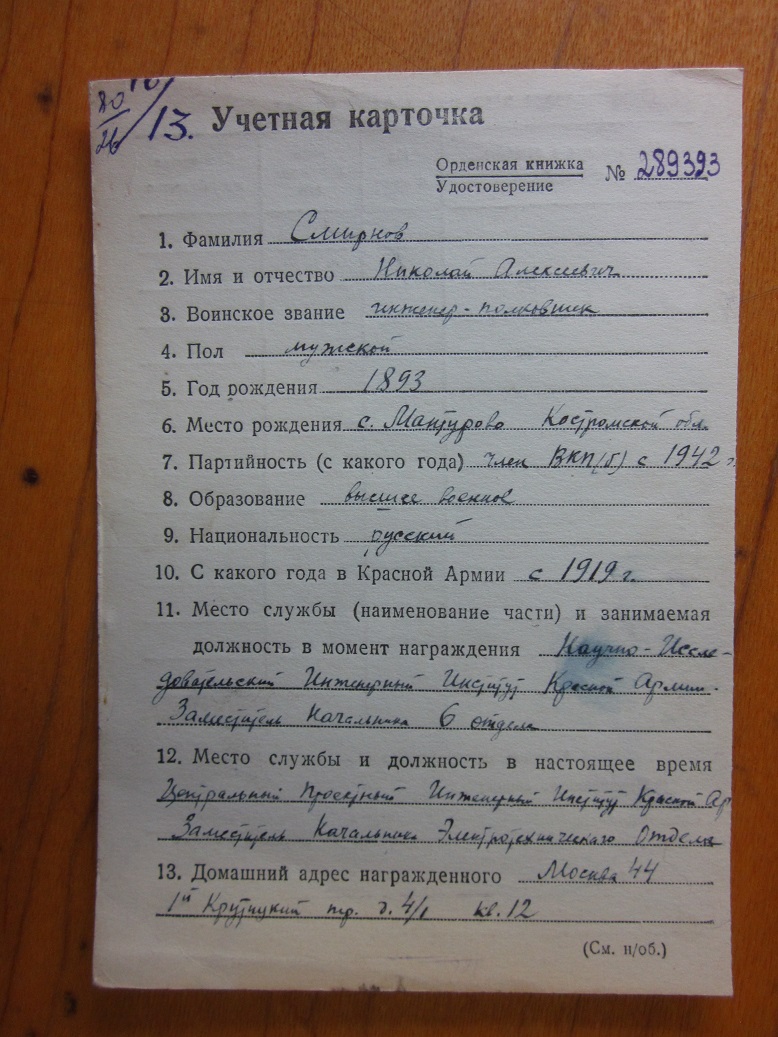 13. Учетная карточка
Орденская книжка
Удостоверение № 289393
1. Фамилия Смирнов
2. Имя и отчество Николай Алексеевич
3. Воинское звание инженер-полковник
4. Пол мужской
5. Год рождения 1893
6. Место рождения с. Мантурово Костромской обл.
7. Партийность (с какого года) член ВКП(б) с 1942 г.
8. Образование высшее военное
9. Национальность русский
10. С какого года в Красной Армии с 1919 г.
11. Место службы (наименование части) и занимаемая
должность в момент награждения Научно-Иссле-
довательский Инженерный Институт Красной Армии.
Заместитель Начальника 6 отдела
12. Место службы и должность в настоящее время
Центральный Проектный Инженерный Институт Красной Ар
Заместитель Начальника Электротехнического Отдела
13. Домашний адрес награжденного Москва 44
1й Крутицкий пер. д. 4/1 кв. 12
(См. н/об.)